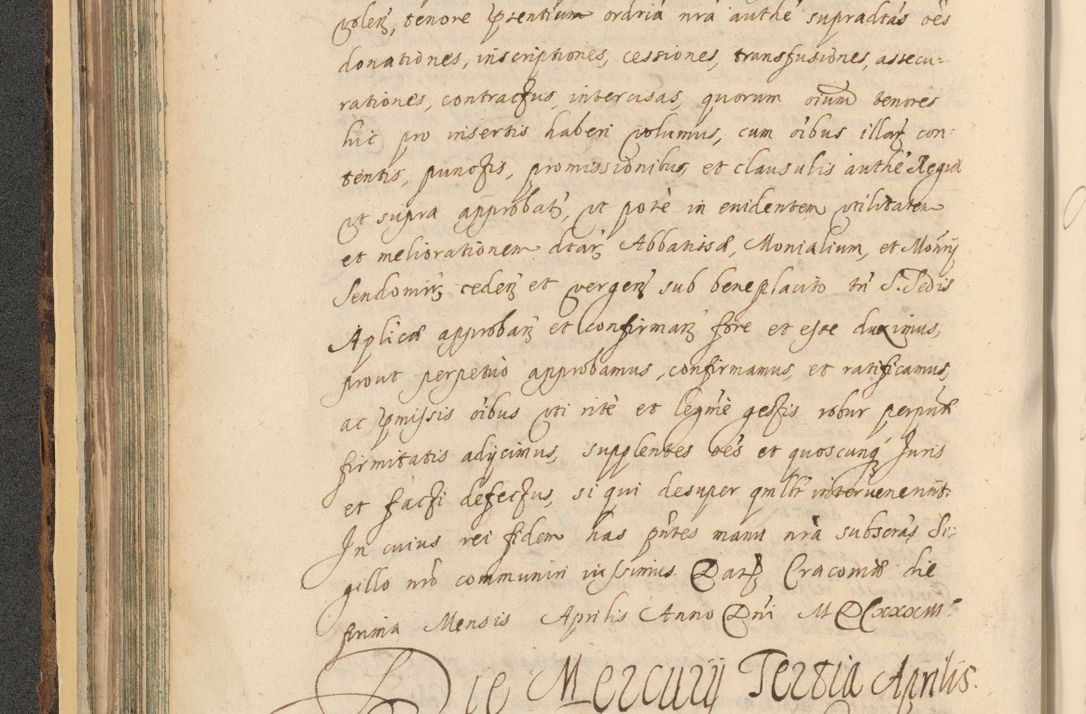 volen̄, tenore p̄sentium ordria nra authe supradtas oes
donationes, inscriptiones, cessiones, transfusiones, assecu-
rationes, contractus, intercisas, quorum oium tenores
hic pro insertis haberi volumus, cum oibus illar con-
tentis, punctis, promissionibus, et clausulis authe Regia
ut supra approbat, ut pote in evidentem utilitatem
et meliorationem dtar Abbatissæ, Monialium, et Monrij
Sendomir ceden et vergen sub beneplacito tn S. Sedis
Aplicæ approban et confirman fore et esse duximus,
prout perpetuò approbamus, confirmamus, et ratificamus,
ac pmissis oibus uti ritè et legmè gestis robur perput
firmitatis adijcimus, supplentes oes et quoscunq Juris
et facti defectus, si qui desuper qmlbt intervenerint.
In cuius rei fidem has pntes manu nra subscras Si-
gillo nro communiri iussimus. Dat Cracoviæ die
prima Mensis Aprilis Anno Dni MDCxxxiii.
Die Mercurij Tertia Aprilis.